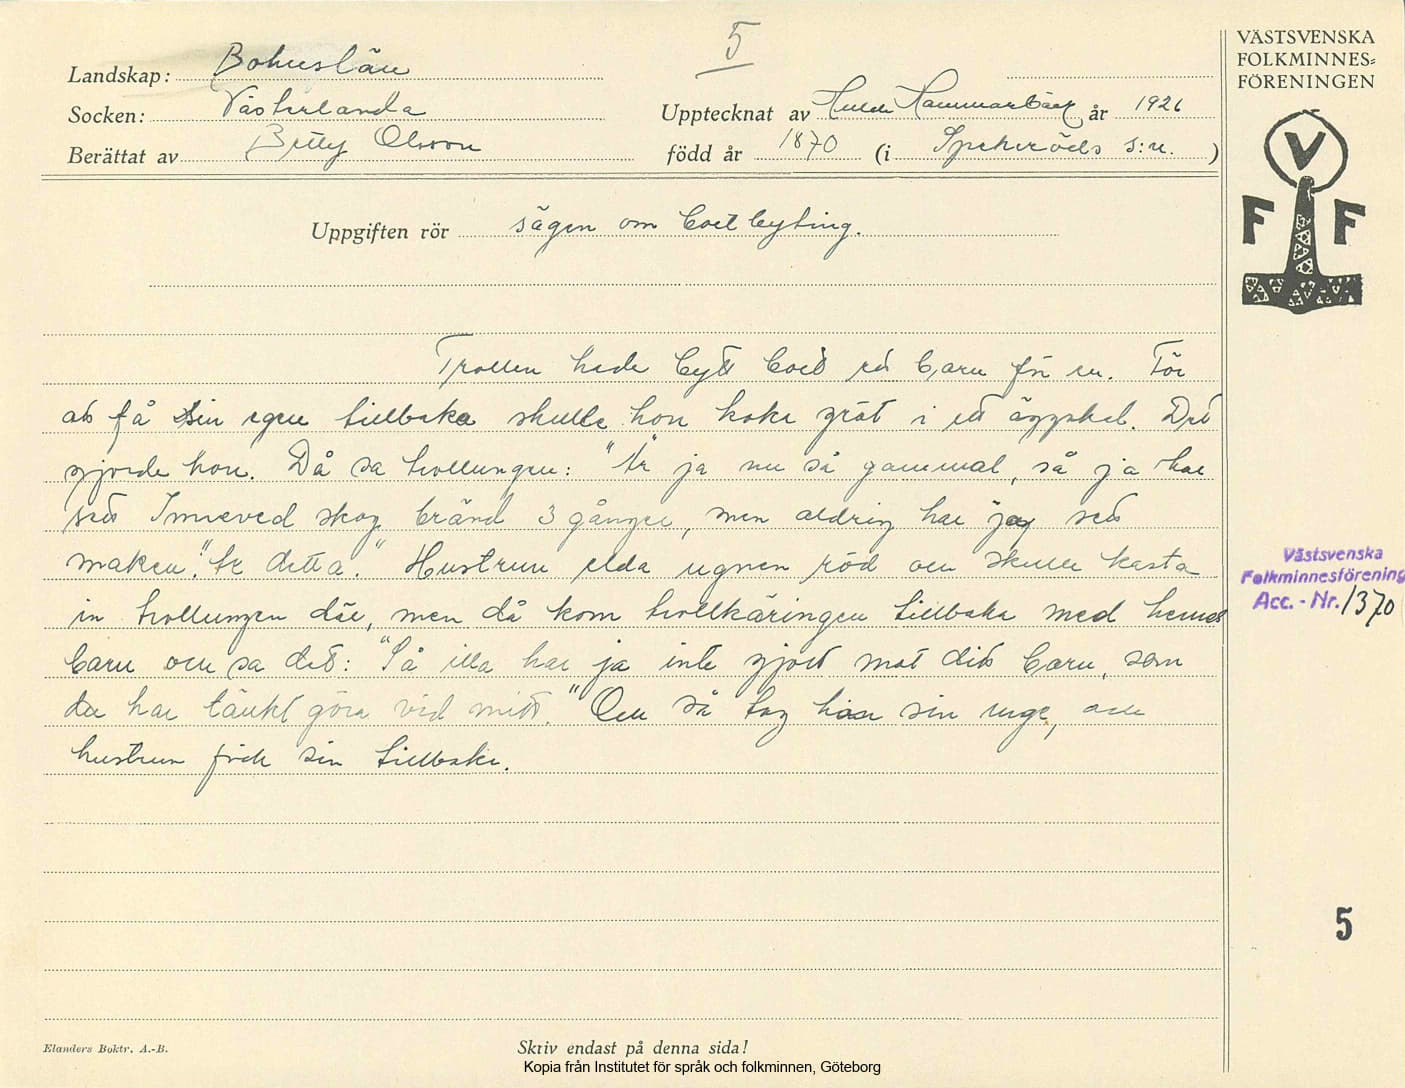 5
VÄSTSVENSKA
FOLKMINNES=
FÖRENINGEN
Landskap: Bohuslän
Socken: Västerlanda
Upptecknat av Hulda Hammarbäck år 1926
Berättat av Betty Olsson
född år 1870 (i Spekeröds s:n. )
V
F F
Uppgiften rör sägen om bortbyting.
Trollen hade bytt bort ett barn för en. För
att få sin egen tillbaka skulle hon koka gröt i ett äggskal. Det
gjorde hon. Då sa trollungen: "Är ja nu så gammal, så ja har
sett Inneved skog bränd 3 gånger, men aldrig har jag sett
maken." te detta." Hustrun elda ugnen röd och skulle kasta
in trollungen där, men då kom trollkäringen tillbaka med hennes
barn och sa det: "Så illa har ja inte gjort mot ditt barn, som
du har tänkt göra vid mitt." Och så tog hon sin unge, och
hustrun fick sin tillbaka.
Västsvenska
Folkminnesförening
Acc. - Nr. 1370
5
Elanders Boktr. A.-B.
Skriv endast på denna sida!
Kopia från Institutet för språk och folkminnen, Göteborg